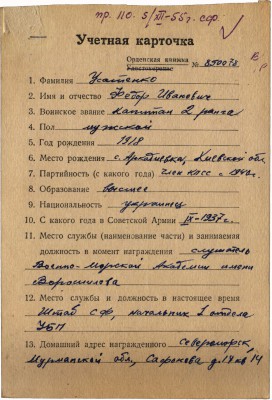 пр. 110. 5/XII-55г. СФ.
Учетная карточка
Орденская книжка
Удостоверение № 850078
1. Фамилия Усатенко
2. Имя и отчество Федор Иванович
3. Воинское звание капитан 2 ранга
4. Пол мужской
5. Год рождения 1918
6. Место рождения Киевской обл
7. Партийность (с какого года) член КПСС с 1940г.
8. Образование высшее
9. Национальность украинец
10. С какого года в Советской Армии IX-1937г.
11. Место службы (наименование части) и занимаемая
должность в момент награждения слушатель
Военно-Морской Академии имени
Ворошилова
12. Место службы и должность в настоящее время
Штаб СФ, начальник отдела
УБП
13. Домашний адрес награжденного Североморск
Мурманской обл, Сафонова д.14 кв 14